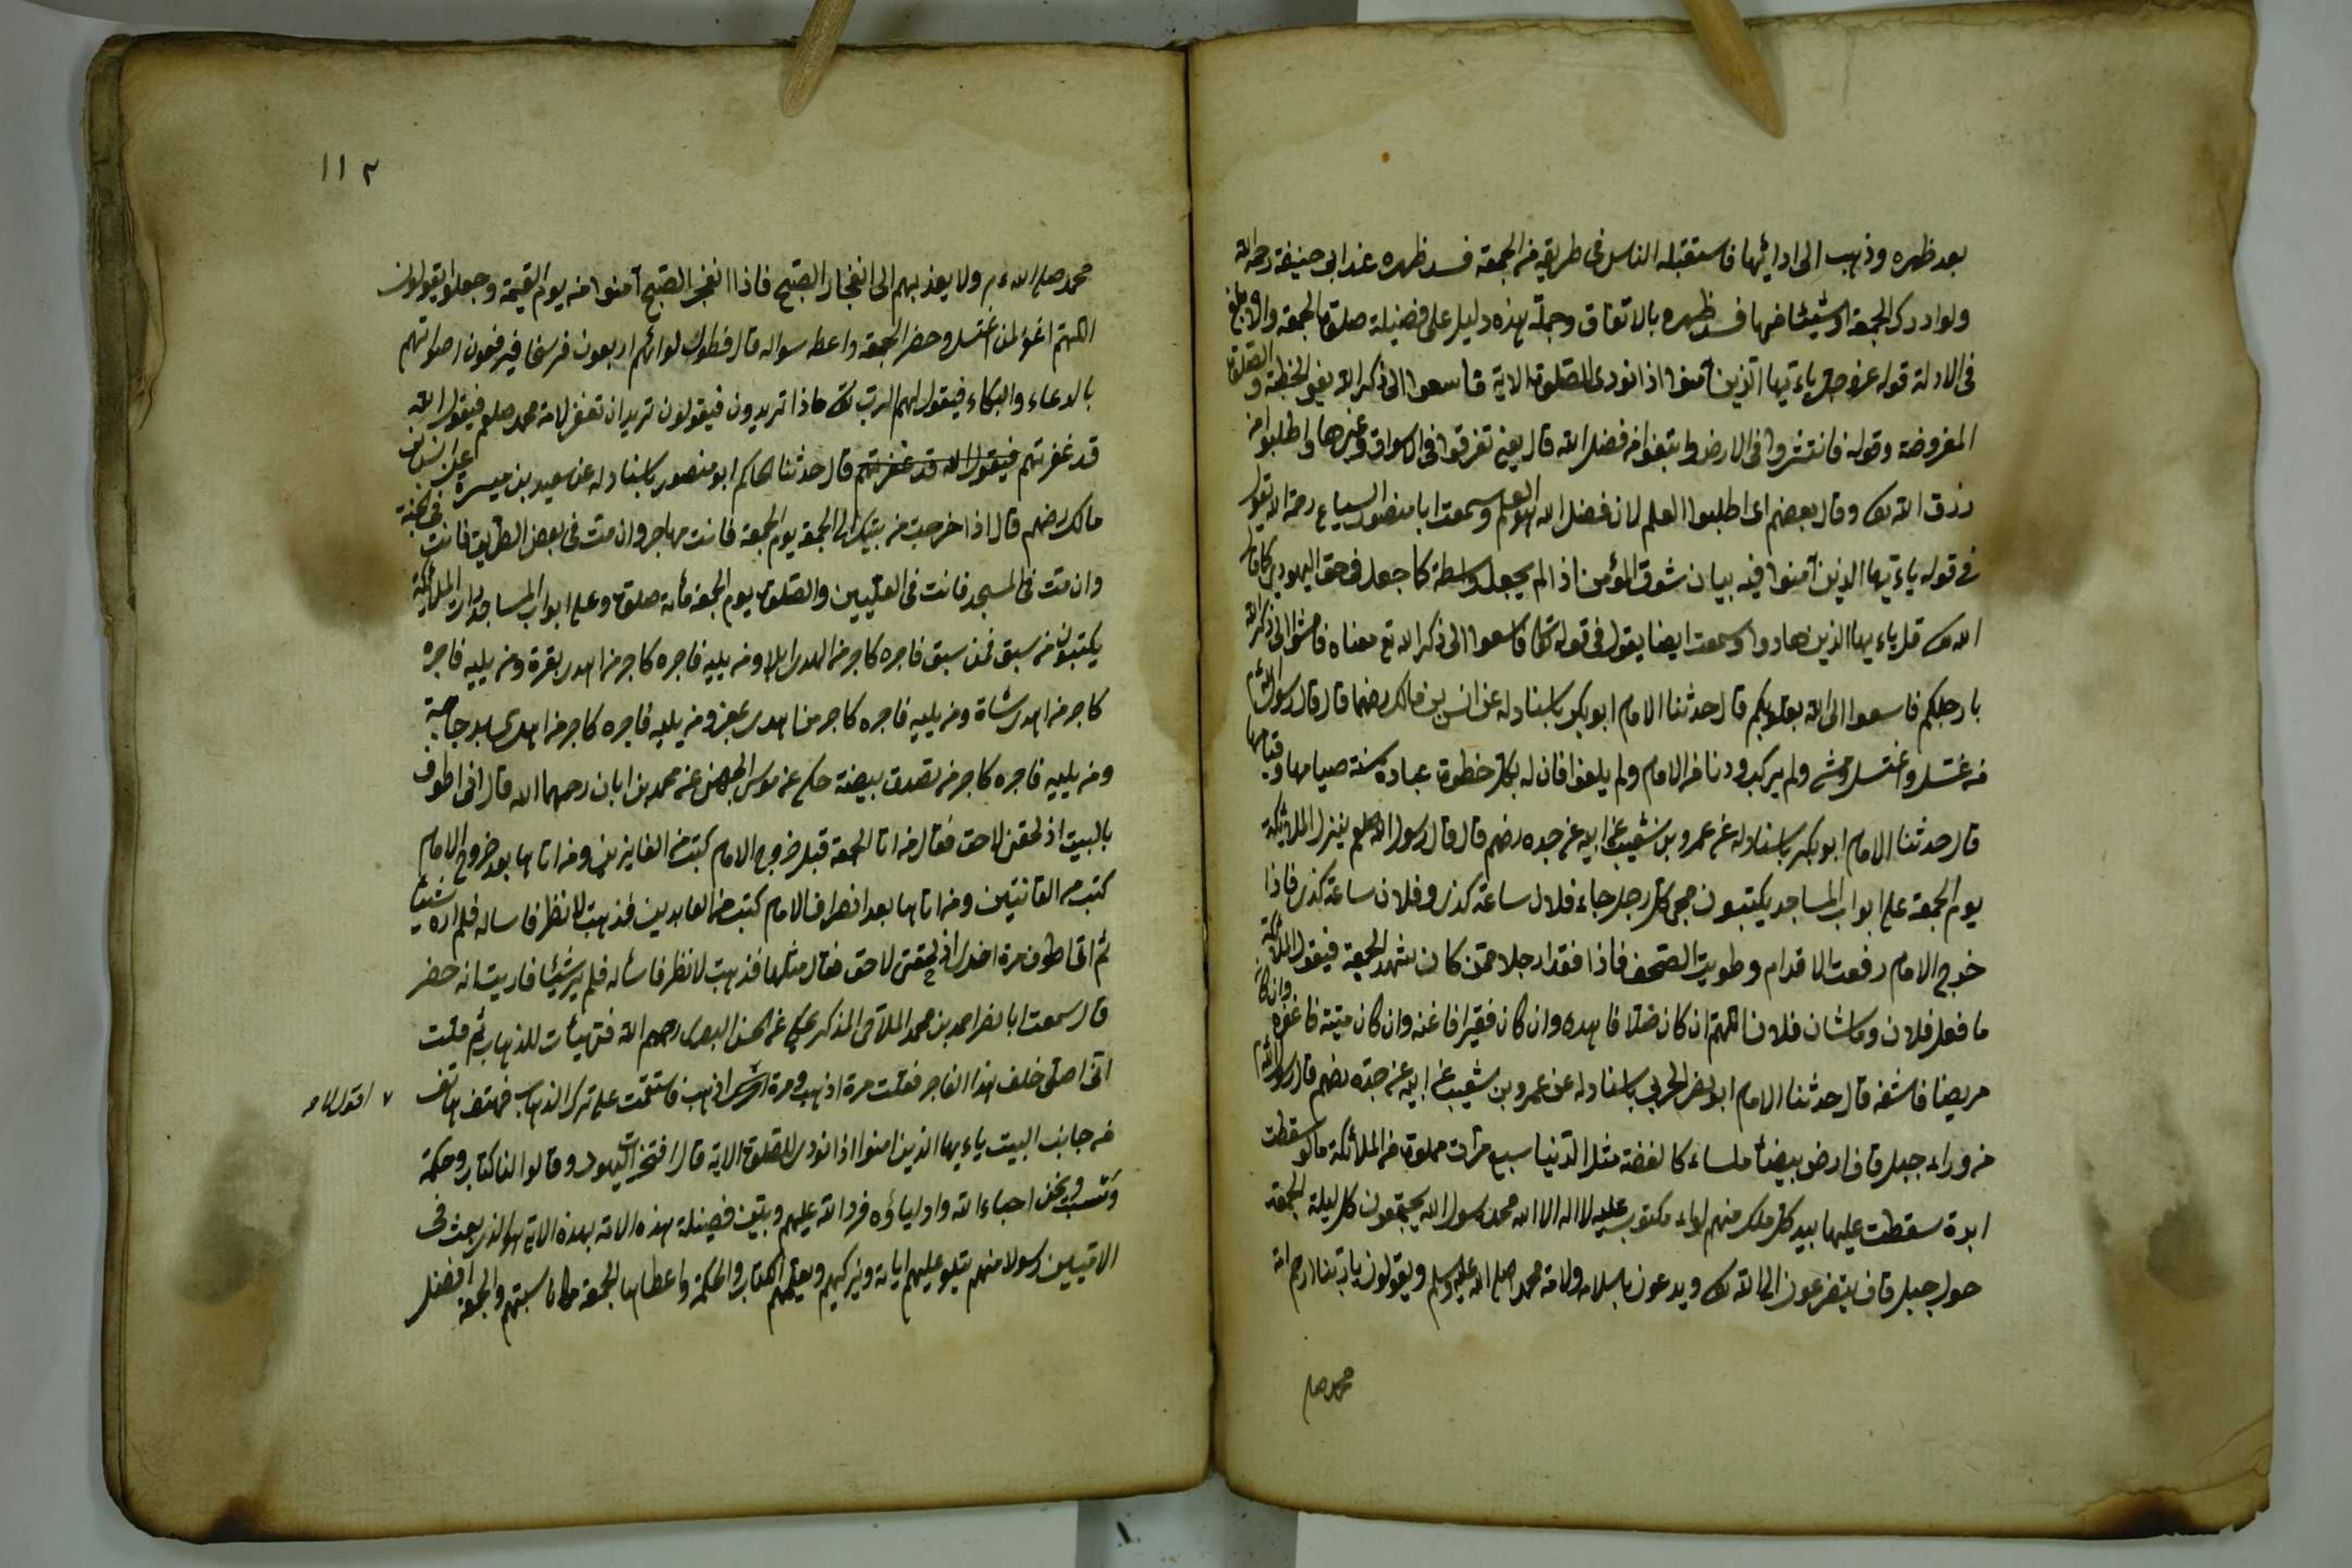 بعد ظهره وذهب الى ادائها فاستقبله الناس فى طريقه من الجمعة فسد ظهره عند ابى حنيفة رحمه الله
ولو ادرك الجمعة او شيئا منها فسد ظهره بالاتفاق وجملة هذه دليل على فضيلة صلوة الجمعة والابلغ
فى الادلة قوله عز وجل ياءيها الذين آمنوا اذا نودى للصلوة الاية فاسعوا الى ذكر الله يعنى الخطبة والصلوة
المفروضة وقوله فانتشروا فى الارض وابتغوا من فضل الله قال يعنى تفرقوا فى الاسواق وغيرها واطلبوا من
رزق الله تع وقال بعضهم اى اطلبوا العلم لان فضل الله هو العلم وسمعت ابا منصور السياع رحمه الله يقول
فى قوله ياءيها الذين آمنوا فيه بيان شوق المؤمن اذ لم يجعل واسطة كما جعل فى حق اليهود كما قال
الله تع قل ياءيها الذين هادوا وسمعت ايضا يقول فى قوله تع فاسعوا الى ذكر الله تع معناه فامشوا الى ذكر الله
بارجلكم فاسعوا الى الله بقلوبكم قال حدثنا الامام ابو بكر باسناد له عن انس بن مالك رضهما قال قال رسول الله عم
من غسل واغتسل ومشى ولم يركب ودنا من الامام ولم يلغوا فان له بكل خطوة عبادة سنة صيامها وقيامها
قال حدثنا الامام ابو بكر باسناد له عن عمرو بن شعيب عن ابيه عن جده رضهم قال قال رسول الله صلعم ينزل الملائكة
يوم الجمعة على ابواب المساجد يكتبون مجى كل رجل جاء فلان ساعة كذى وفلان ساعة كذى فاذا
خروج الامام رفعت الاقدام وطويت الصحف فاذا فقدا رجلا ممن كان يشهد الجمعة فيقول الملائكة
ما فعل فلان وما شان فلان اللهم ان كان ضالا فاهده وان كان فقيرا فاغنه وان كان ميتة فاغفره وان كان
مريضا فاشفه قال حدثنا الامام ابو نصر الحربى باسناد له عن عمرو بن شعيب عن ابيه عن جده رضهم قال رسول الله عم
من وراء جبل قاف ارض بيضاء ملساء كالفضة مثل الدنيا سبع مرات مملوة من الملائكة ما لو سقطت
ابرة سقطت عليها بيد كل ملك منهم لواء مكتوب عليه لا اله الا الله محمد رسول الله يجتمعون كل ليلة الجمعة
حول جبل قاف يتضرعون الى الله تع ويدعون بالسلامة ولامة محمد صلى الله عليه وسلم ويقولون يا ربنا ارحم امة
محمد صلى
١١٢
محمد صلى الله عم ولا يعذبهم الى انفجار الصبح فاذا انفجر الصبح آمنوا من يوم القيمة وجعلوا يقولون
اللهم اغفر لمن اغتسل وحضر الجمعة واعطه سواله قال فطول لوائهم اربعون فرسخا فيرفعون اصواتهم
بالدعاء والبكاء فيقول لهم الرب تع ماذا تريدون فيقولون نريد ان تغفر لامة محمد صلعم فيقول الله
قد غفرتهم فيقول الله قد غفرتهم قال حدثنا الحاكم ابو منصور باسناد له عن سعيد بن ميسرة عن انس بن
مالك رضهم قال اذا خرجت من بيتك الى الجمعة يوم الجمعة فانت مهاجر وان مت فى بعض الطريق فانت فى الجنة
وان مت فى المسجد فانت فى العليين والصلوة يوم الجمعة مأة صلوة وعلى ابواب المساجد الملائكة
يكتبون من سبق فمن سبق فاجره كاجر من اهدى ابلا ومن يليه فاجره كاجر من اهدى بقرة ومن يليه فاجره
كاجر من اهدى شاة ومن يليه فاجره كاجر من اهدى عجز ومن يليه فاجره كاجر من اهدى دجاجة
ومن يليه فاجره كاجر من تصدق ببيضة حكى عن موسى الجهنى عن محمد بن ابان رحمهما الله قال انى اطوف
بالبيت اذ لحقنى لاحق فقال من اتا الجمعة قبل خروج الامام كتب من الفايزين ومن اتاها بعد خروج الامام
كتب من القانتين ومن اتاها بعد انصراف الامام كتب من العابدين فذهبت لانظر فاساله فلم اره شيئا
ثم اتى اطوف مرة اخرى اذ لحقنى لاحق فقال مثلها فذهبت لانظر فاسأله فلم ير شيئا فاريت انه خضر
قال سمعت ابا نصر احمد بن محمد الملاحى المذكر يحكى عن الحسن البصرى رحمهم الله فتهيأت للذهاب ثم قلت
انى اصلى خلف هذا الفاجر فقلت مرة اذهب ومرة اذهب فاستقمت على ترك الذهاب فهتف هاتف
٧ اقول لا
من جانب البيت ياءيها الذين امنوا اذا نودى للصلوة الاية قال افتخرت اليهود وقالوا لنا كتاب وحكمة
ونسب ونحن احباء الله واولياؤه فرد الله عليهم وبين فضيلة هذه الامة بهذه الاية هو الذى بعث فى
الاميين رسولا منهم يتلو عليهم اياته ويزكيهم ويعلمهم الكتاب والحكمة واعطاها الجمعة مكان سبتهم والجمعة افضل